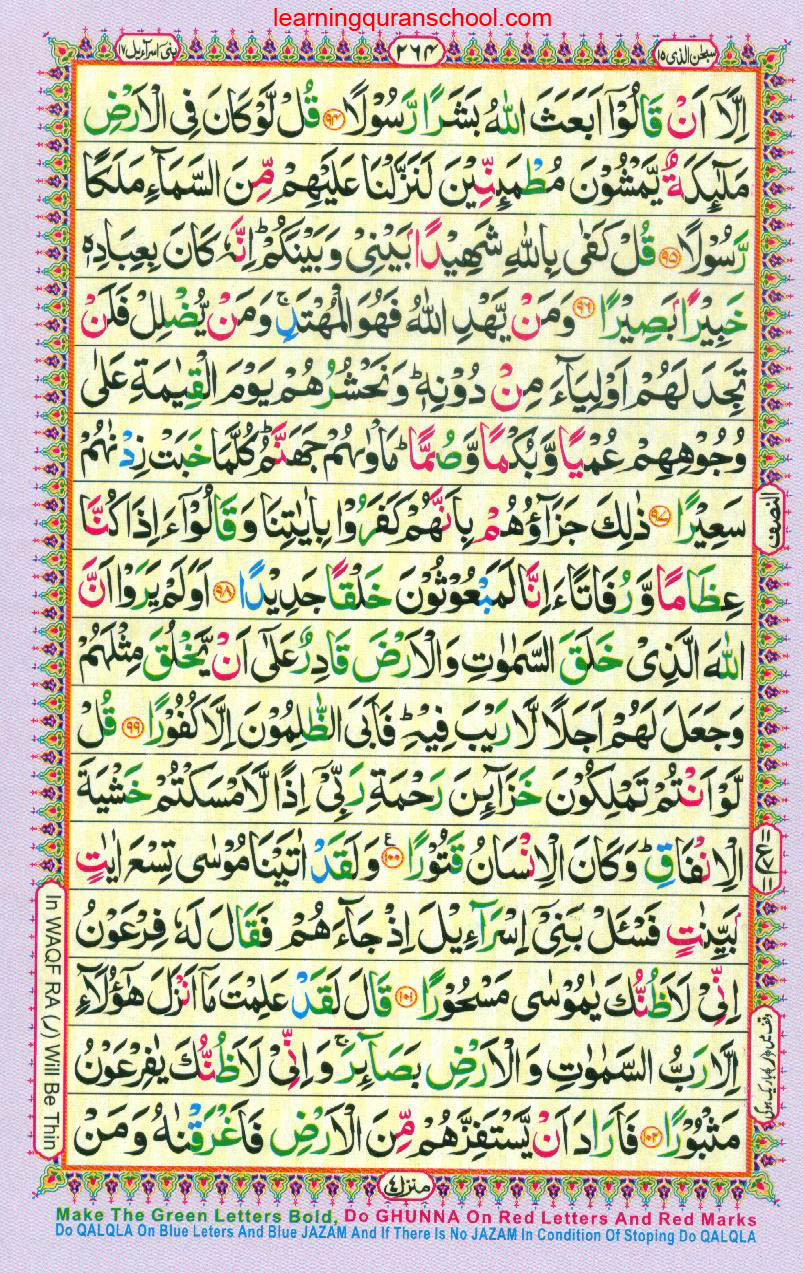 learningquranschool.com
بنیٓ اسرآءیل ۱۷
۲۶۴
سبحٰن الذی ۱۵
اِلَّاۤ اَنْ قَالُوْۤا اَبَعَثَ اللّٰهُ بَشَرًا رَّسُوْلًا ﴿۹۴﴾ قُلْ لَّوْ كَانَ فِی الْاَرْضِ
مَلٰٓىِٕكَةٌ یَّمْشُوْنَ مُطْمَىِٕنِّیْنَ لَنَزَّلْنَا عَلَیْهِمْ مِّنَ السَّمَآءِ مَلَكًا
رَّسُوْلًا ﴿۹۵﴾ قُلْ كَفٰی بِاللّٰهِ شَهِیْدًۢا بَیْنِیْ وَ بَیْنَكُمْ ؕ اِنَّهٗ كَانَ بِعِبَادِهٖ
خَبِیْرًۢا بَصِیْرًا ﴿۹۶﴾ وَ مَنْ یَّهْدِ اللّٰهُ فَهُوَ الْمُهْتَدِ ۚ وَ مَنْ یُّضْلِلْ فَلَنْ
تَجِدَ لَهُمْ اَوْلِیَآءَ مِنْ دُوْنِهٖ ؕ وَ نَحْشُرُهُمْ یَوْمَ الْقِیٰمَةِ عَلٰی
وُجُوْهِهِمْ عُمْیًا وَّ بُكْمًا وَّ صُمًّا ؕ مَاْوٰىهُمْ جَهَنَّمُ ؕ كُلَّمَا خَبَتْ زِدْنٰهُمْ
سَعِیْرًا ﴿۹۷﴾ ذٰلِكَ جَزَآؤُهُمْ بِاَنَّهُمْ كَفَرُوْا بِاٰیٰتِنَا وَ قَالُوْۤا ءَاِذَا كُنَّا
عِظَامًا وَّ رُفَاتًا ءَاِنَّا لَمَبْعُوْثُوْنَ خَلْقًا جَدِیْدًا ﴿۹۸﴾ اَوَ لَمْ یَرَوْا اَنَّ
اللّٰهَ الَّذِیْ خَلَقَ السَّمٰوٰتِ وَ الْاَرْضَ قَادِرٌ عَلٰۤی اَنْ یَّخْلُقَ مِثْلَهُمْ
وَ جَعَلَ لَهُمْ اَجَلًا لَّا رَیْبَ فِیْهِ ؕ فَاَبَی الظّٰلِمُوْنَ اِلَّا كُفُوْرًا ﴿۹۹﴾ قُلْ
لَّوْ اَنْتُمْ تَمْلِكُوْنَ خَزَآىِٕنَ رَحْمَةِ رَبِّیْۤ اِذًا لَّاَمْسَكْتُمْ خَشْیَةَ
الْاِنْفَاقِ ؕ وَ كَانَ الْاِنْسَانُ قَتُوْرًا ﴿۱۰۰﴾ وَ لَقَدْ اٰتَیْنَا مُوْسٰی تِسْعَ اٰیٰتٍۭ
بَیِّنٰتٍ فَسْـَٔلْ بَنِیْۤ اِسْرَآءِیْلَ اِذْ جَآءَهُمْ فَقَالَ لَهٗ فِرْعَوْنُ
اِنِّیْ لَاَظُنُّكَ یٰمُوْسٰی مَسْحُوْرًا ﴿۱۰۱﴾ قَالَ لَقَدْ عَلِمْتَ مَاۤ اَنْزَلَ هٰۤؤُلَآءِ
اِلَّا رَبُّ السَّمٰوٰتِ وَ الْاَرْضِ بَصَآىِٕرَ ۚ وَ اِنِّیْ لَاَظُنُّكَ یٰفِرْعَوْنُ
مَثْبُوْرًا ﴿۱۰۲﴾ فَاَرَادَ اَنْ یَّسْتَفِزَّهُمْ مِّنَ الْاَرْضِ فَاَغْرَقْنٰهُ وَ مَنْ
النصف
منزل ۴
In WAQF RA (ر) Will Be Thin
Make The Green Letters Bold, Do GHUNNA On Red Letters And Red Marks
Do QALQLA On Blue Leters And Blue JAZAM And If There Is No JAZAM In Condition Of Stoping Do QALQLA